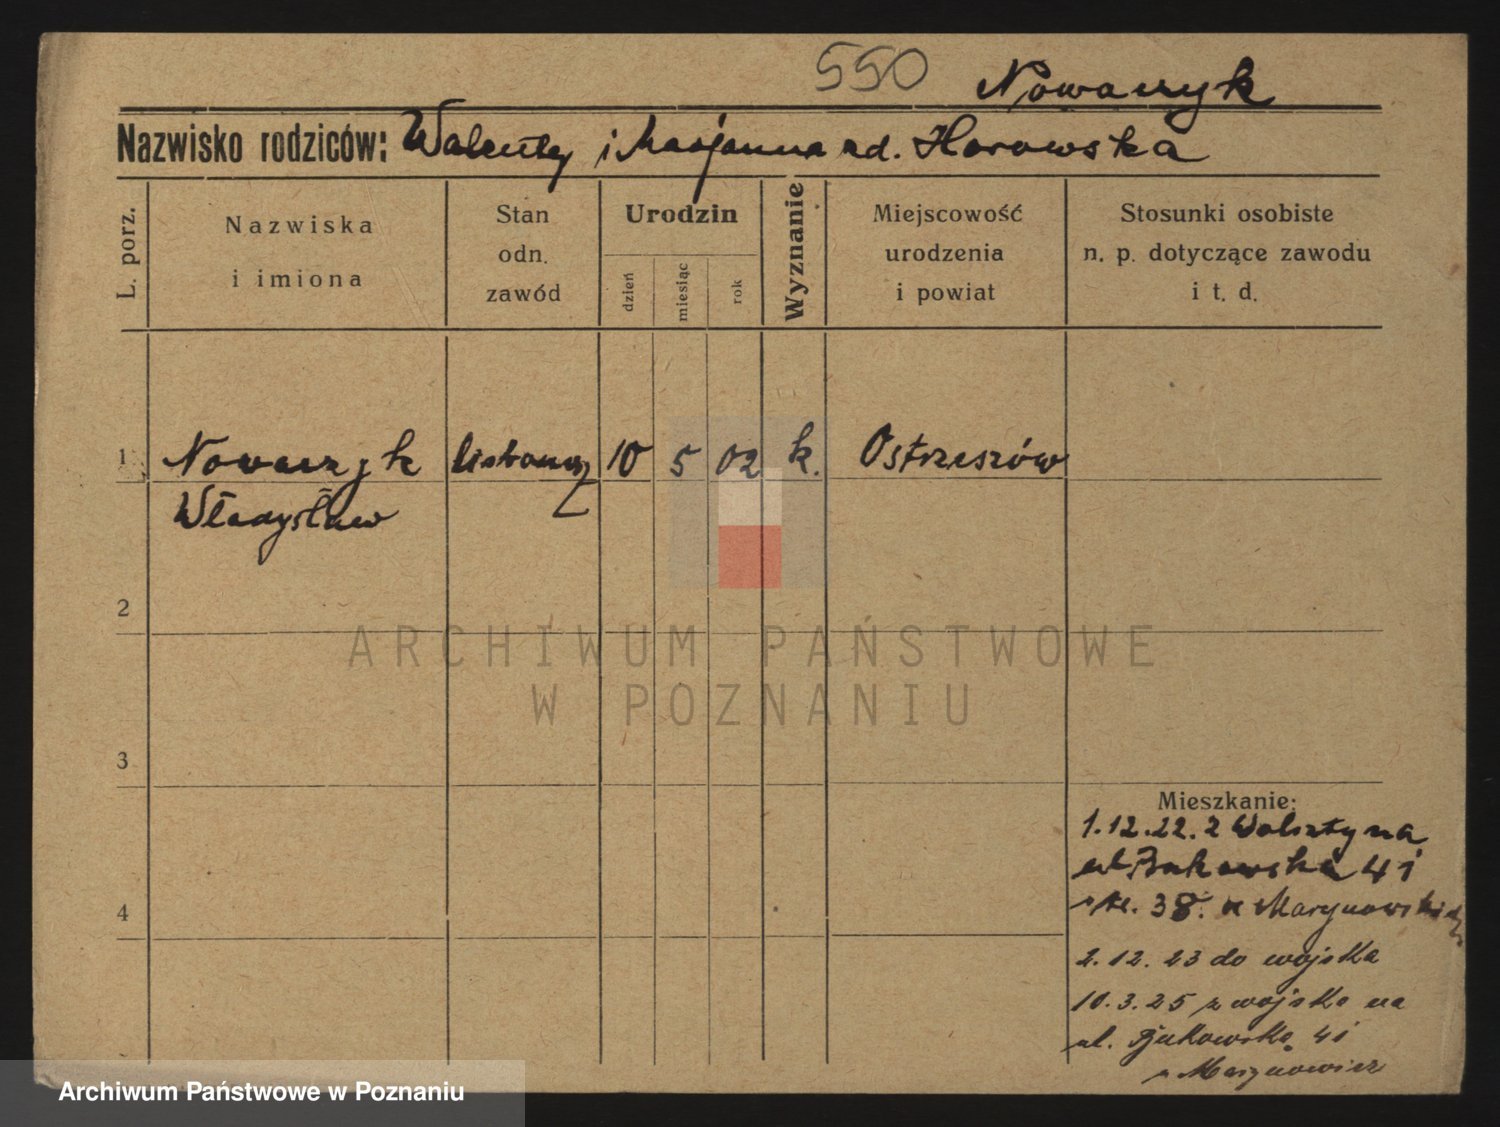 550 Nowaczyk
Nazwisko rodziców: Walenty i Marjanna zd. Horowska
L. porz.
Nazwiska
i imiona
Stan
odn.
zawód
Urodzin
dzień
miesiąc
rok
Wyznanie
Miejscowość
urodzenia
i powiat
Stosunki osobiste
n. p. dotyczące zawodu
i t. d.
1 Nowaczyk listonosz 10 5 02 k. Ostrzeszów
Władysław
2
3
4
ARCHIWUM PAŃSTWOWE
W POZNANIU
Mieszkanie:
1.12.22. z Wolsztyna
ul Bukowska 41
38.
2.12.23 do wojska
10.3.25 z wojska na
ul. Bukowską 41
Archiwum Państwowe w Poznaniu